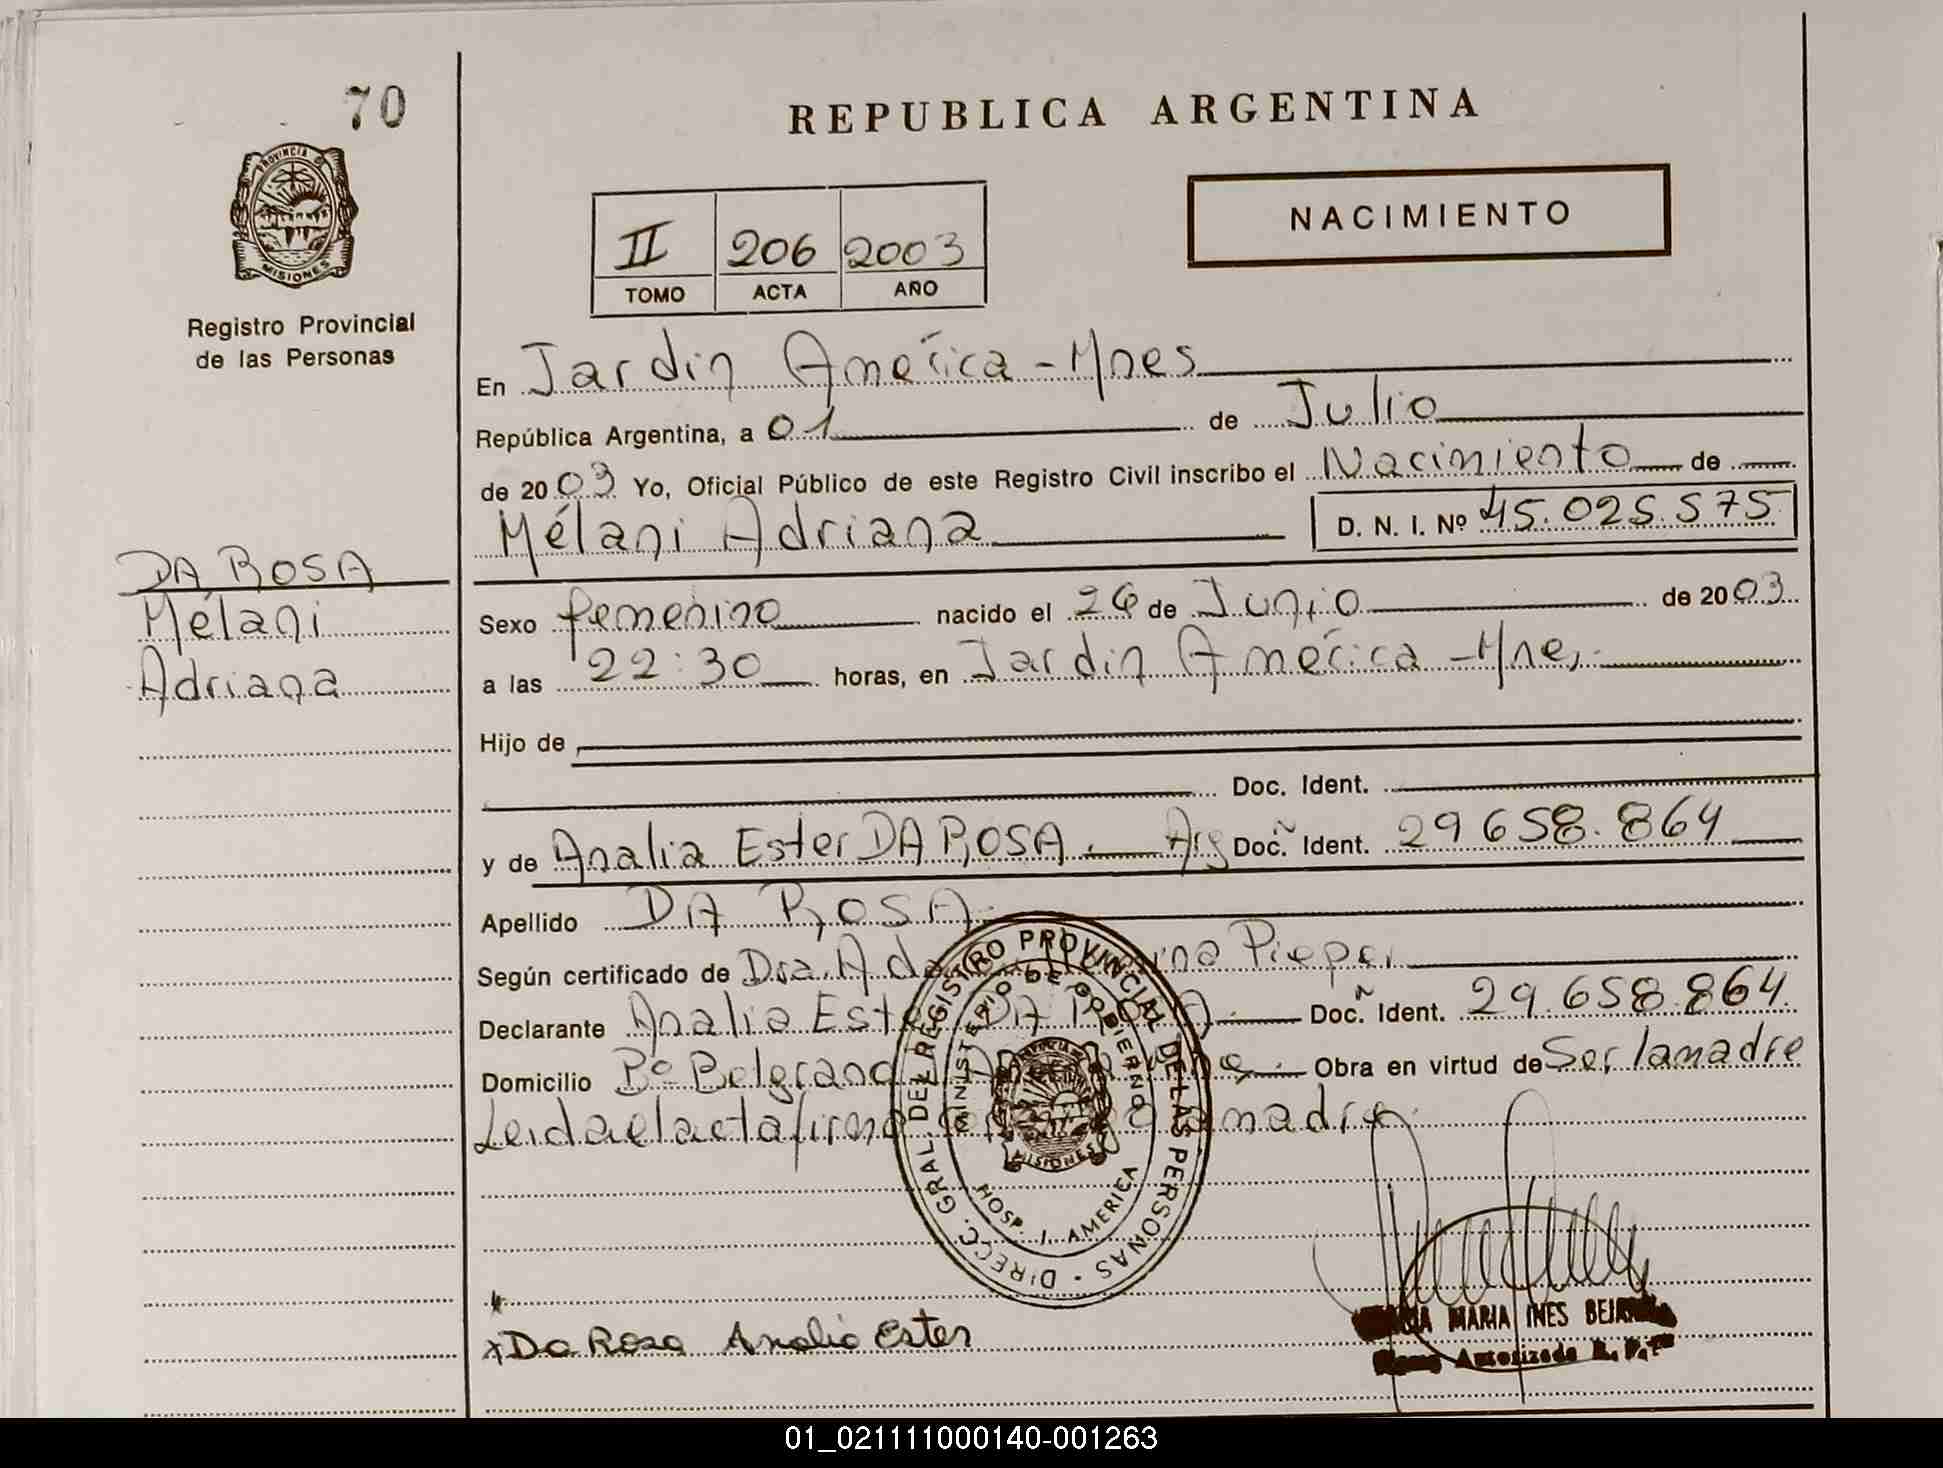 70
REPUBLICA ARGENTINA
PROVINCIA DE
MISIONES
Registro Provincial
de las Personas
NACIMIENTO
II 206 2003
TOMO ACTA AÑO
En Jardin América - Mnes
República Argentina, a 01 de Julio
de 2003 Yo, Oficial Público de este Registro Civil inscribo el Nacimiento de
Mélani Adriana D. N. I. Nº 45.025.575
DA ROSA
Mélani
Adriana
Sexo femenino nacido el 26 de Junio de 2003
a las 22:30 horas, en Jardin América - Mnes
Hijo de
Doc. Ident.
y de Analia Ester DA ROSA Arg Doc. Ident. 29658.864
Apellido DA ROSA
Según certificado de Dra. Pieper
Declarante Analia Ester DA ROSA Doc. Ident. 29.658.864
Domicilio Bº Belgrano Obra en virtud de Ser la madre
Leida el acta firma la madre
DIRECC. GRAL. DEL REGISTRO PROVINCIAL DE LAS PERSONAS
MINISTERIO DE GOBIERNO
PROVINCIA DE
MISIONES
HOSP. J. AMERICA
x Da Rosa Analia Ester
MARIA INES
Autorizada R. P.
01_021111000140-001263